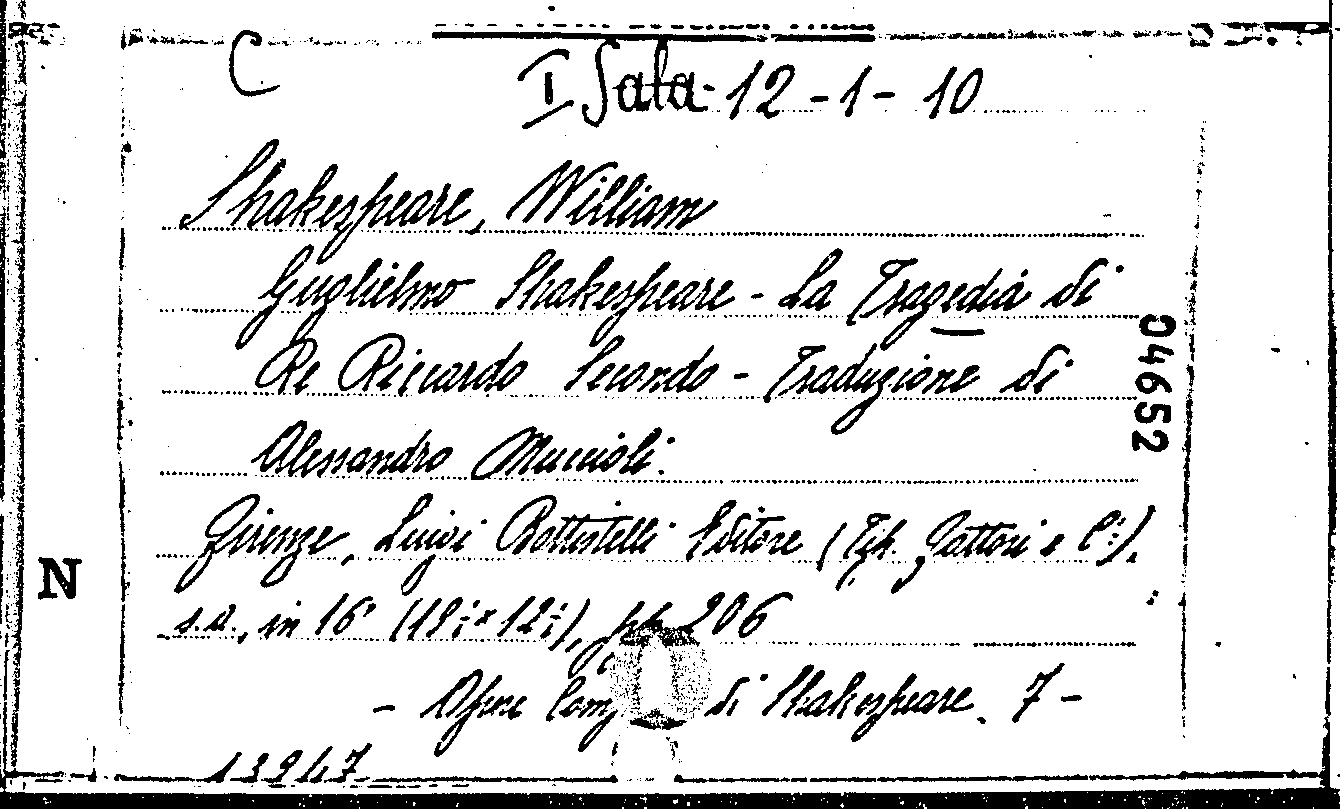 C
I Sala 12-1-10
Shakespeare, William
Guglielmo Shakespeare - La Tragedia di
Re Riccardo Secondo - Traduzione di
Alessandro Muccioli.
Firenze, Luigi Battistelli Editore (Tip. Fattori e C.i),
s.a., in 16° pp. 206
- Opere di Shakespeare. 7 -
13947
04652
N